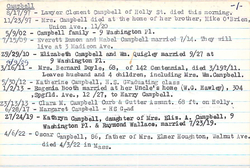 Campbell
8/11/97 - Lawyer Clement Campbell of Holly St. died this morning
11/23/97 - Mrs. Campbell died at the home of her brother, Mike O'Brien, Union Ave., 11/20
5/9/02 - Campbell family 9 Washington Pl.
7/15/09 - Everett Bowen and Mabel Campbell married 9/14. They will live at 3 Madison Ave.
29/29/10 - Elizabeth Campbell and Wm. Quigley married 9/27 at 9 Washington Pl.
3/16/11 - Mrs. Bernard Doyle, 68, of 142 Centennial, died 3/15/11. Leaves husband and 4 children, including Mrs. Wm. Campbell,
5/30/12 - Katherine Campbell, H.S. Graduating class
1/2/13 - Eugenia Booth married at her Uncle's home (W.G. Hawley), 304 Spgfld. Ave., 12/27, to Harry Campbell.
3/13/13 - Clara M. Campbell Cork & Gutter Account, 68 ft. on Holly.
6/28/17 - Margaret Campbell - HS Grad
27/24/19 - Kathryn Campbell, daughter of Mrs. Eliz. A. Campbell, 9 Washington Pl. & Raymond Wallace, married 7/23/19.
4/6/22 - Oscar Campbell, 56, father of Mrs. Elmer Houghton, Walnut Ave. died 4/3/22 in Mass.